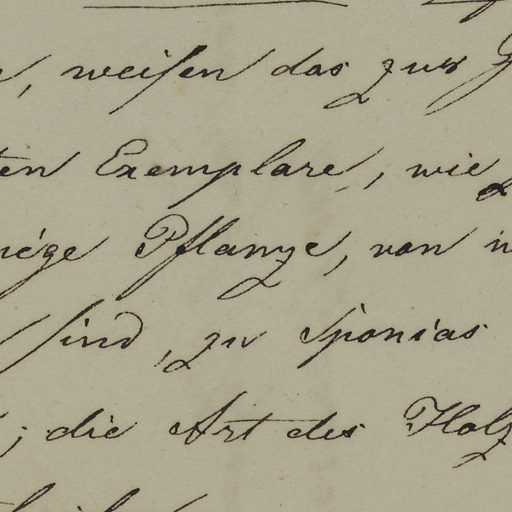 , weisen das zur
ten Exemplare, wie
Pflanze, von
sind, zu Sponias
; die Art des Holz